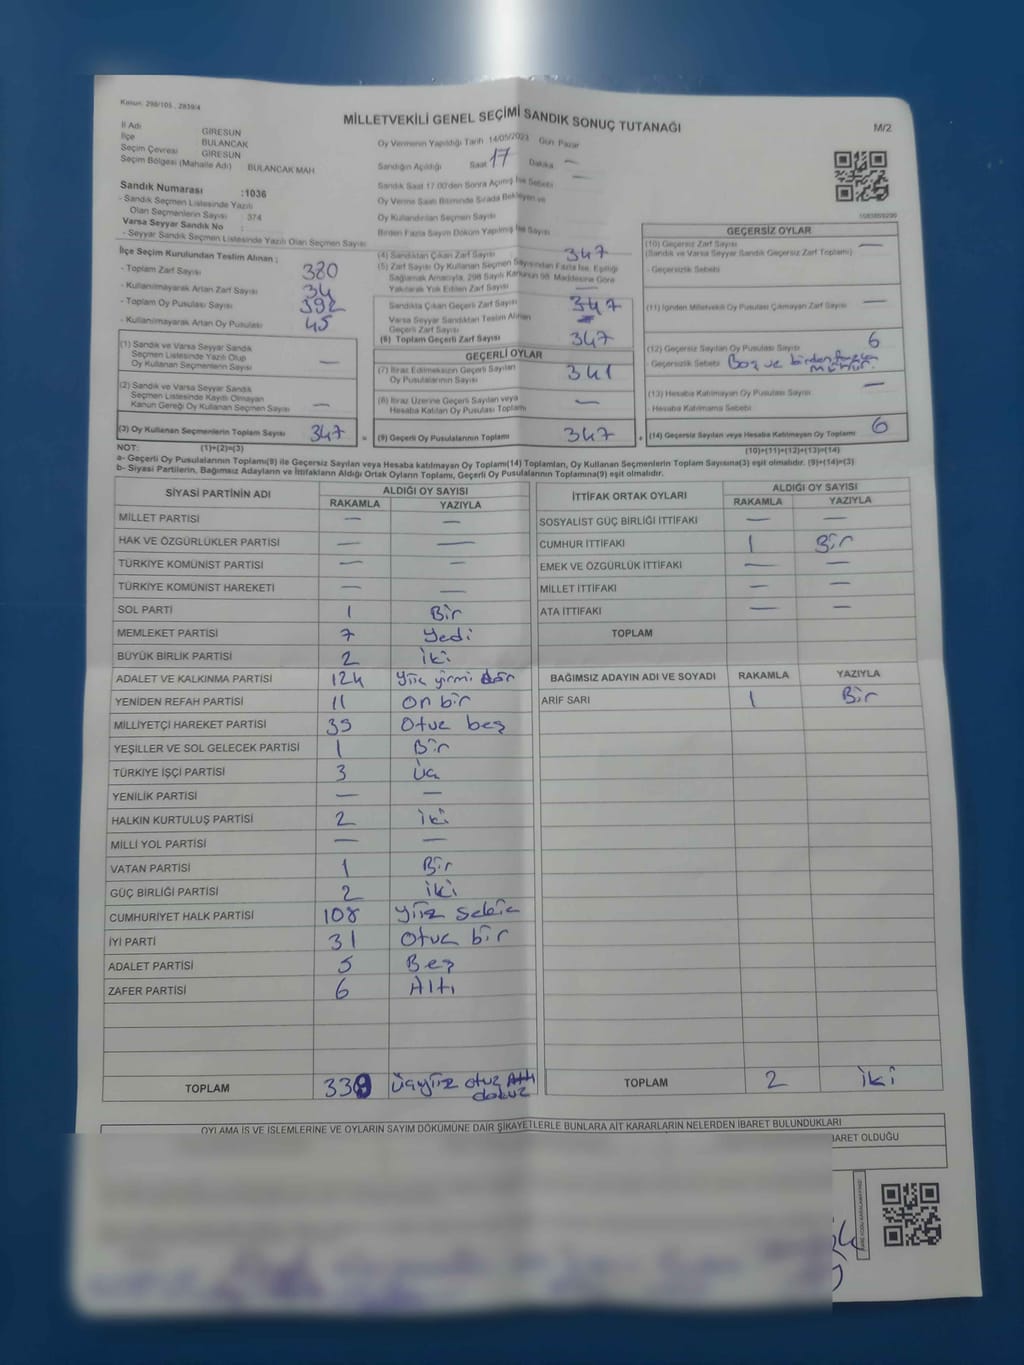 Kanun: 298/105, 2839/4
MİLLETVEKİLİ GENEL SEÇİMİ SANDIK SONUÇ TUTANAĞI
M/2
İl Adı GİRESUN
İlçe BULANCAK
Seçim Çevresi GİRESUN
Seçim Bölgesi (Mahalle Adı) BULANCAK MAH
Sandık Numarası :1036
- Sandık Seçmen Listesinde Yazılı
Olan Seçmenlerin Sayısı : 374
Varsa Seyyar Sandık No :
- Seyyar Sandık Seçmen Listesinde Yazılı Olan Seçmen Sayısı
Oy Vermenin Yapıldığı Tarih 14/05/2023 Gün Pazar
Sandığın Açıldığı Saat 17 Dakika —
Sandık Saat 17.00'den Sonra Açılmış İse Sebebi —
Oy Verme Saati Bitiminde Sırada Bekleyen ve
Oy Kullandırılan Seçmen Sayısı
Birden Fazla Sayım Döküm Yapılmış İse Sayısı
İlçe Seçim Kurulundan Teslim Alınan ;
- Toplam Zarf Sayısı 380
- Kullanılmayarak Artan Zarf Sayısı 34
- Toplam Oy Pusulası Sayısı 392
- Kullanılmayarak Artan Oy Pusulası 45
(1) Sandık ve Varsa Seyyar Sandık
Seçmen Listesinde Yazılı Olup
Oy Kullanan Seçmenlerin Sayısı —
(2) Sandık ve Varsa Seyyar Sandık
Seçmen Listesinde Kayıtlı Olmayan
Kanun Gereği Oy Kullanan Seçmen Sayısı —
(3) Oy Kullanan Seçmenlerin Toplam Sayısı 347
(4) Sandıktan Çıkan Zarf Sayısı 347
(5) Zarf Sayısı Oy Kullanan Seçmen Sayısından Fazla İse, Eşitliği
Sağlamak Amacıyla, 298 Sayılı Kanunun 98. Maddesine Göre
Yakılarak Yok Edilen Zarf Sayısı —
Sandıkta Çıkan Geçerli Zarf Sayısı 347
Varsa Seyyar Sandıktan Teslim Alınan
Geçerli Zarf Sayısı
(6) Toplam Geçerli Zarf Sayısı 347
GEÇERLİ OYLAR
(7) İtiraz Edilmeksizin Geçerli Sayılan
Oy Pusulalarının Sayısı 341
(8) İtiraz Üzerine Geçerli Sayılan veya
Hesaba Katılan Oy Pusulası Toplamı —
= (9) Geçerli Oy Pusulalarının Toplamı 347
GEÇERSİZ OYLAR
(10) Geçersiz Zarf Sayısı —
(Sandık ve Varsa Seyyar Sandık Geçersiz Zarf Toplamı)
- Geçersizlik Sebebi
(11) İçinden Milletvekili Oy Pusulası Çıkmayan Zarf Sayısı —
(12) Geçersiz Sayılan Oy Pusulası Sayısı 6
- Geçersizlik Sebebi Boş ve birden fazla mühür.
(13) Hesaba Katılmayan Oy Pusulası Sayısı —
- Hesaba Katılmama Sebebi
+ (14) Geçersiz Sayılan veya Hesaba Katılmayan Oy Toplamı 6
NOT: (1)+(2)=(3) (10)+(11)+(12)+(13)=(14)
a- Geçerli Oy Pusulalarının Toplamı(9) ile Geçersiz Sayılan veya Hesaba katılmayan Oy Toplamı(14) Toplamları, Oy Kullanan Seçmenlerin Toplam Sayısına(3) eşit olmalıdır. (9)+(14)=(3)
b- Siyasi Partilerin, Bağımsız Adayların ve İttifakların Aldığı Ortak Oyların Toplamı, Geçerli Oy Pusulalarının Toplamına(9) eşit olmalıdır.
SİYASİ PARTİNİN ADI ALDIĞI OY SAYISI
RAKAMLA YAZIYLA
MİLLET PARTİSİ — —
HAK VE ÖZGÜRLÜKLER PARTİSİ — —
TÜRKİYE KOMÜNİST PARTİSİ — —
TÜRKİYE KOMÜNİST HAREKETİ — —
SOL PARTİ 1 Bir
MEMLEKET PARTİSİ 7 Yedi
BÜYÜK BİRLİK PARTİSİ 2 iki
ADALET VE KALKINMA PARTİSİ 124 Yüz yirmi dör
YENİDEN REFAH PARTİSİ 11 On bir
MİLLİYETÇİ HAREKET PARTİSİ 35 Otuz beş
YEŞİLLER VE SOL GELECEK PARTİSİ 1 Bir
TÜRKİYE İŞÇİ PARTİSİ 3 Üç
YENİLİK PARTİSİ — —
HALKIN KURTULUŞ PARTİSİ 2 iki
MİLLİ YOL PARTİSİ — —
VATAN PARTİSİ 1 Bir
GÜÇ BİRLİĞİ PARTİSİ 2 iki
CUMHURİYET HALK PARTİSİ 108 Yüz sekiz
İYİ PARTİ 31 Otuz bir
ADALET PARTİSİ 5 Beş
ZAFER PARTİSİ 6 Altı
TOPLAM 339 Üçyüz otuz dokuz
İTTİFAK ORTAK OYLARI ALDIĞI OY SAYISI
RAKAMLA YAZIYLA
SOSYALİST GÜÇ BİRLİĞİ İTTİFAKI — —
CUMHUR İTTİFAKI 1 Bir
EMEK VE ÖZGÜRLÜK İTTİFAKI — —
MİLLET İTTİFAKI — —
ATA İTTİFAKI — —
TOPLAM
BAĞIMSIZ ADAYIN ADI VE SOYADI RAKAMLA YAZIYLA
ARİF SARI 1 Bir
TOPLAM 2 iki
OYLAMA İŞ VE İŞLEMLERİNE VE OYLARIN SAYIM DÖKÜMÜNE DAİR ŞİKAYETLERLE BUNLARA AİT KARARLARIN NELERDEN İBARET BULUNDUKLARI
BARET OLDUĞU